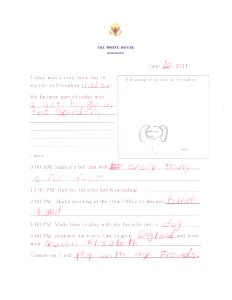 THE WHITE HOUSE
WASHINGTON
June 2011
Today was a very busy day in
my life as President
My favorite part of today was
I got to go in
the garden.
A drawing of me as President
I also:
9:00 AM: Signed a bill that will
every thing
is for free
12:00 PM: Had my favorite lunch including
2:00 PM: Had a meeting in the Oval Office to discuss
4:00 PM: Made time to play with my favorite pet: a dog
6:00 PM: Boarded Air Force One to go to England and meet
with Queen Elisabeth
Tomorrow I will play with my Friends.